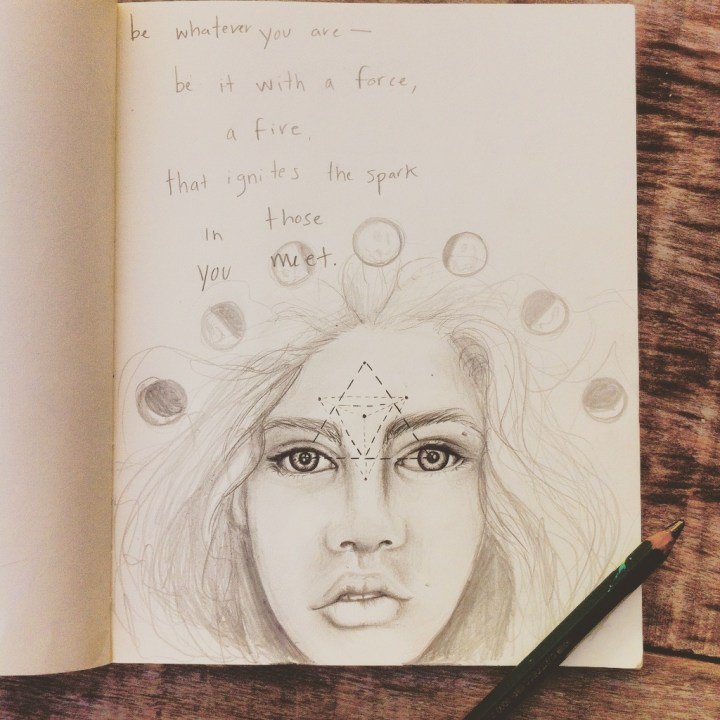 be whatever you are —
be it with a force,
a fire,
that ignites the spark
in those
you meet.